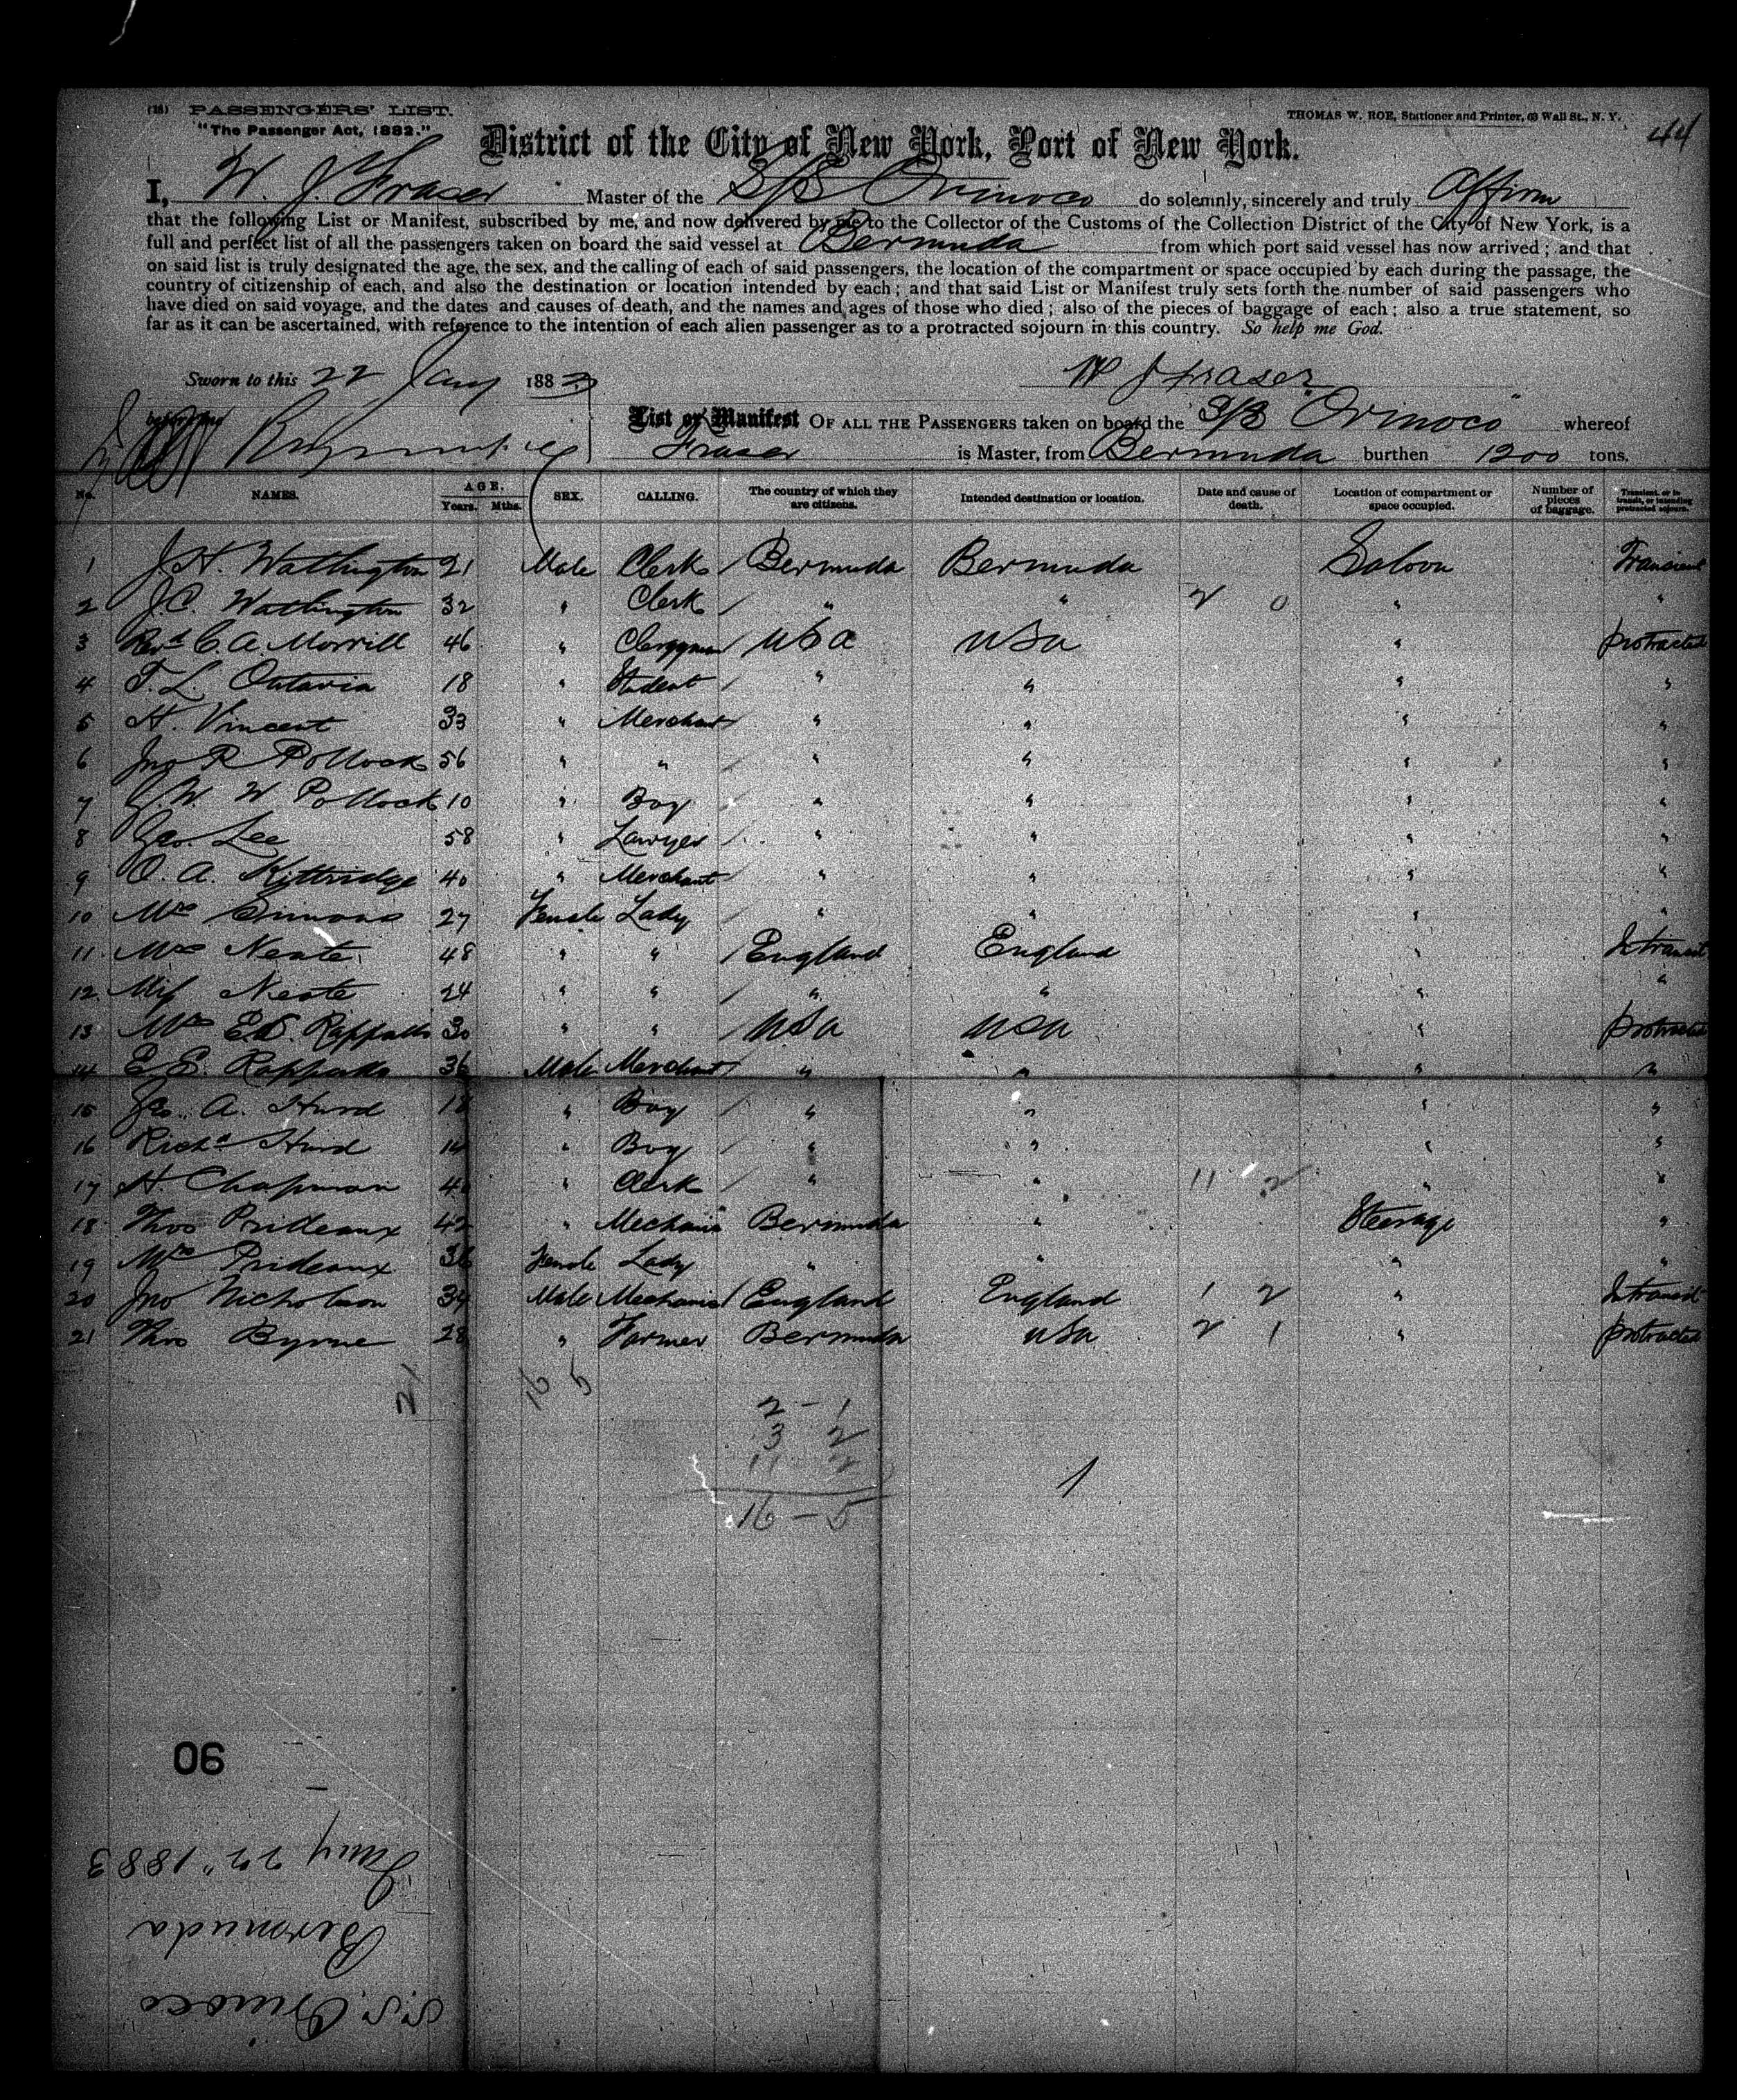 (18) PASSENGERS' LIST. THOMAS W. ROE, Stationer and Printer, 63 Wall St., N. Y.
"The Passenger Act, 1882." 44
District of the City of New York, Port of New York.
I, W. J. Fraser Master of the S/S Orinoco do solemnly, sincerely and truly Affirm
that the following List or Manifest, subscribed by me, and now delivered by me to the Collector of the Customs of the Collection District of the City of New York, is a
full and perfect list of all the passengers taken on board the said vessel at Bermuda from which port said vessel has now arrived; and that
on said list is truly designated the age, the sex, and the calling of each of said passengers, the location of the compartment or space occupied by each during the passage, the
country of citizenship of each, and also the destination or location intended by each; and that said List or Manifest truly sets forth the number of said passengers who
have died on said voyage, and the dates and causes of death, and the names and ages of those who died; also of the pieces of baggage of each; also a true statement, so
far as it can be ascertained, with reference to the intention of each alien passenger as to a protracted sojourn in this country. So help me God.
Sworn to this 22 Jany 1883 W J Fraser
before me
List or Manifest OF ALL THE PASSENGERS taken on board the S/S "Orinoco" whereof
Fraser is Master, from Bermuda burthen 1200 tons.
No. NAMES. AGE. Years. Mths. SEX. CALLING. The country of which they are citizens. Intended destination or location. Date and cause of death. Location of compartment or space occupied. Number of pieces of baggage. Transient, or in transit, or intending protracted sojourn.
1 J H. Watlington 21 Male Clerk Bermuda Bermuda Saloon Transient
2 J C. Watlington 32 " Clerk " " 2 0 " "
3 Revd C. A. Morrill 46 " Clergyman USA USA " protracted
4 T. L. 18 " Student " " " "
5 H. Vincent 33 " Merchant " " " "
6 Jno R Pollock 56 " " " " " "
7 G. W W Pollock 10 " Boy " " " "
8 Geo. Lee 58 " Lawyer " " " "
9 O. A. Kittridge 40 " Merchant " " " "
10 Mrs Simons 27 Female Lady " " " "
11 Mrs Neate 48 " " England England " Intransit
12 Miss Neate 24 " " " " " "
13 Mrs E.S. Rappallo 30 " " USA USA " protracted
14 E S. Rappallo 36 Male Merchant " " " "
15 Geo. A. Hurd 18 " Boy " " " "
16 Richd Hurd 14 " Boy " " " "
17 H. Chapman 40 " Clerk " " 11 2 " "
18 Thos Prideaux 42 " Mechanic Bermuda " Steerage "
19 Mrs Prideaux 36 Female Lady " " " "
20 Jno Nicholson 34 Male Mechanic England England 1 2 " Intransit
21 Thos Byrne 28 " Farmer Bermuda USA 2 1 " protracted
21 16 5
2 - 1
3 2
11 2
1
16 - 5
06
S.S. Orinoco
Bermuda
Jany 22" 1883